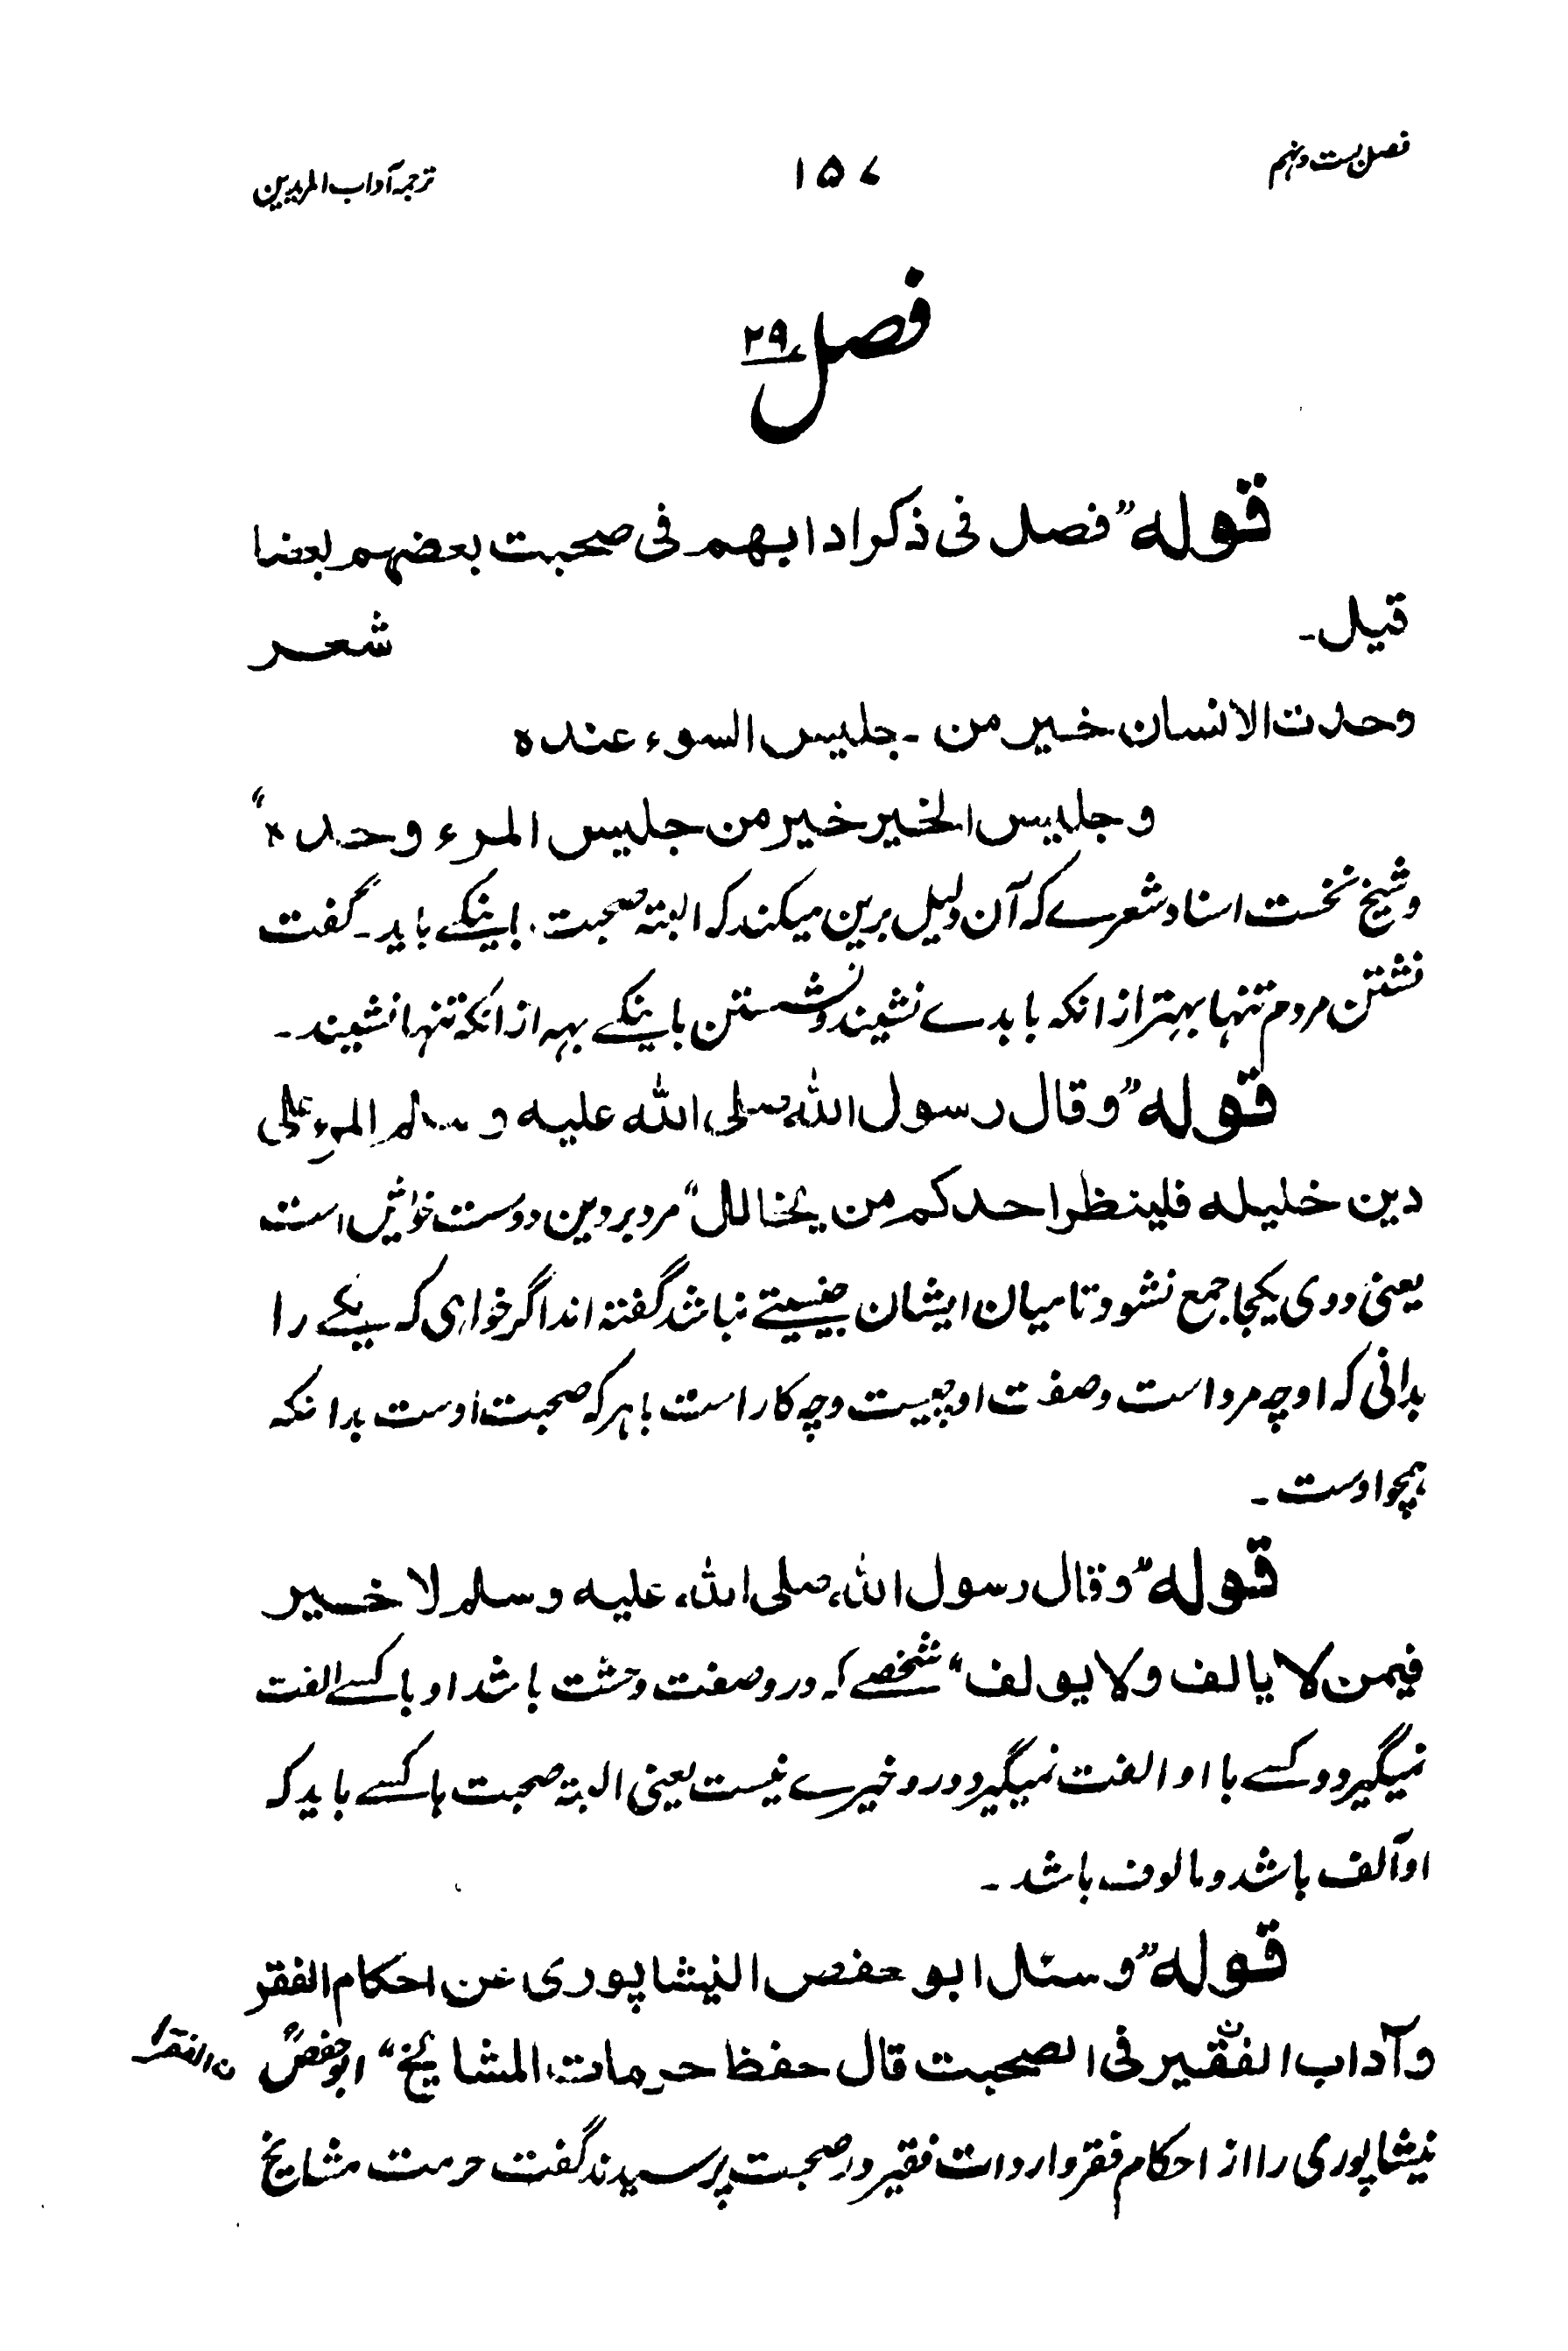 فصل بست و نهم
۱۵۷
ترجمہ آداب المریدین
فصل ۲۹
قوله ”فصل فی ذکر ادابهم فی صحبت بعضهم بعضا
قیل۔ شعر
وحدت الانسان خیر من ۔ جلیس السوء عنده
وجلیس الخیر خیر من جلیس المرء وحده“
وشیخ نخست اسناد شعرے که آن دلیل برین میکند که البته صحبت با نیکے باید۔ گفت
نشتن مردم تنها بهتر از انکه با بدے نشیند و نشستن با نیکے بهه از انکه تنها نشیند۔
قوله ”وقال رسول الله صلی الله علیه وسلم المرء علی
دین خلیله فلینظر احدکم من یخالل“ مرد بر دین دوست خوایش است
یعنی دوی یکجا جمع نشود تا میان ایشان جنسیتے نباشد گفته اند اگر خواهی که یکے را
بدانی که او چه مرد است وصفت او چیست و چه کار است با هر که صحبت اوست بدانکه
همچو اوست۔
قوله ”وقال رسول الله صلی الله علیه وسلم لا خیر
فیمن لا یالف ولا یولف“ شخصے که درو صفت وحشت باشد او با کسے الفت
نمیگیرد و کسے با او الفت نمیگیرد درو خیرے نیست یعنی البته صحبت با کسے باید که
او آلف باشد و مالوف باشد۔
قوله ”وسئل ابو حفص النیشاپوری عن احکام الفقر
وآداب الفقیر فی الصحبت قال حفظ حرمات المشایخ“ ابو حفصؒ
ن الفقرا
نیشاپوری را از احکام فقر وارادات فقیر در صحبت پرسیدند گفت حرمت مشایخ